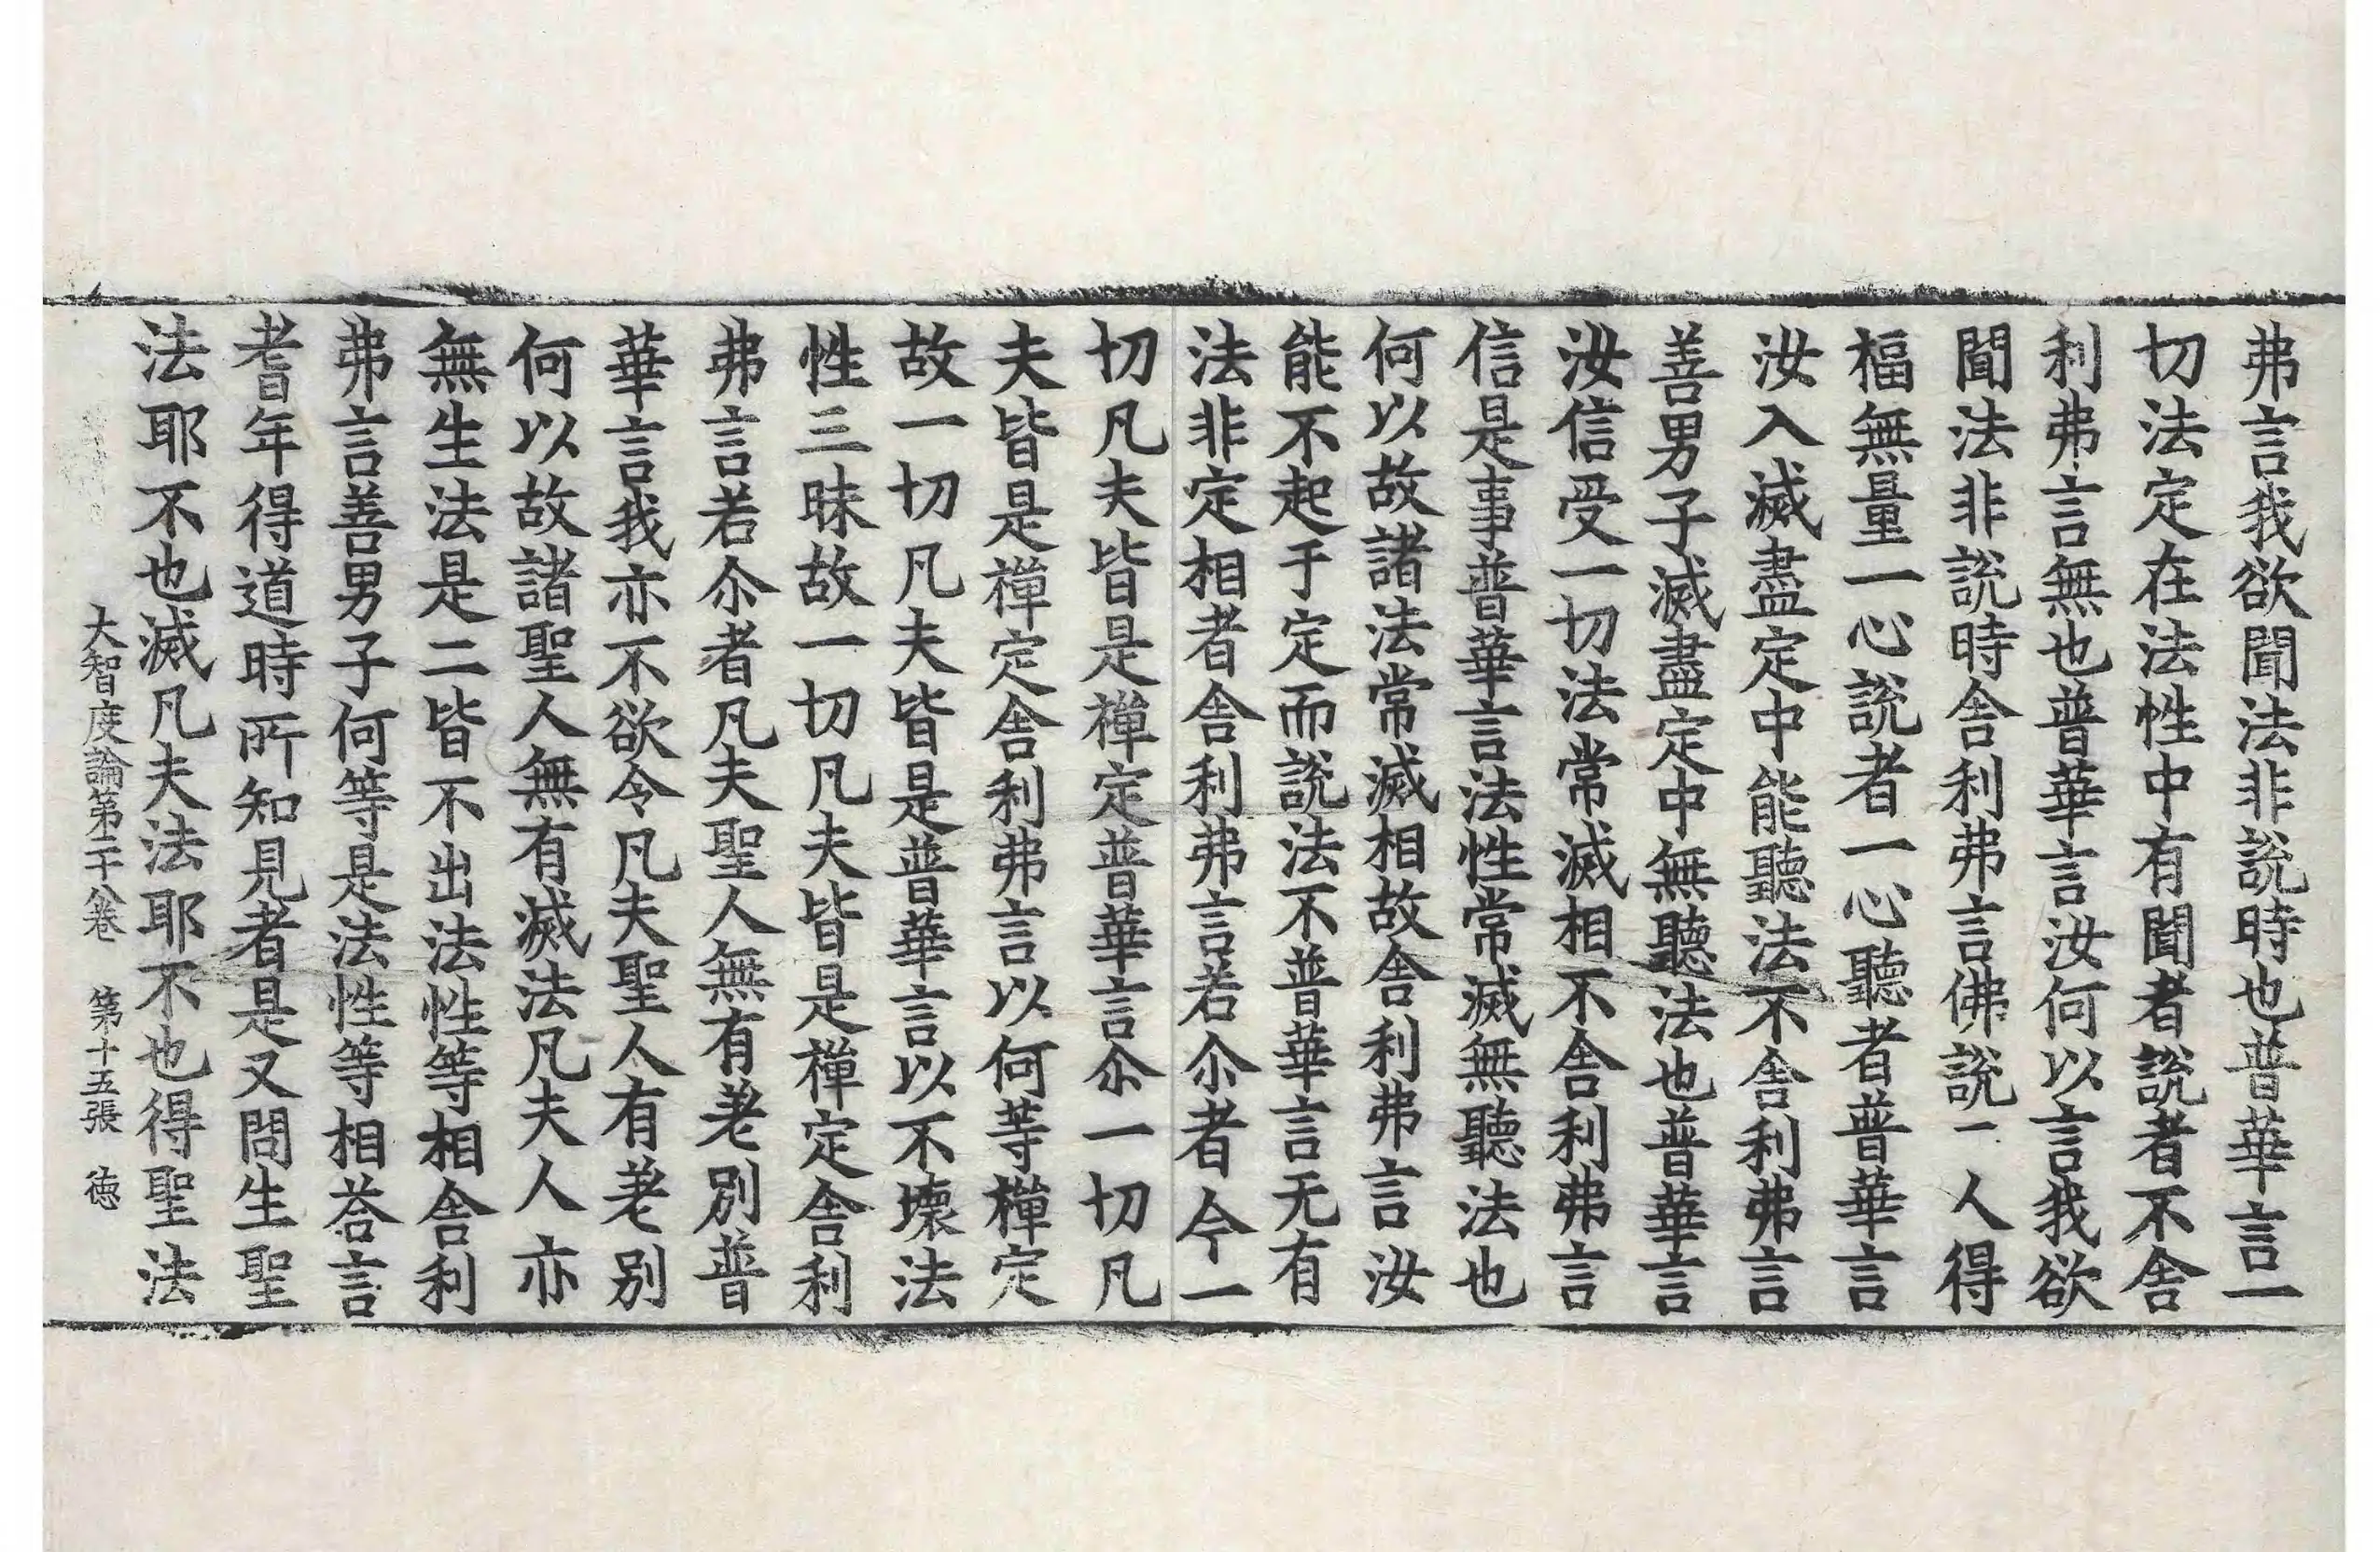 弗言我欲聞法非說時也普華言一
切法定在法性中有聞者說者不舍
利弗言無也普華言汝何以言我欲
聞法非說時舍利弗言佛說一人得
福無量一心說者一心聽者普華言
汝入滅盡定中能聽法不舍利弗言
善男子滅盡定中無聽法也普華言
汝信受一切法常滅相不舍利弗言
信是事普華言法性常滅無聽法也
何以故諸法常滅相故舍利弗言汝
能不起于定而說法不普華言无有
法非定相者舍利弗言若尒者今一
切凡夫皆是禪定普華言尒一切凡
夫皆是禪定舍利弗言以何等禪定
故一切凡夫皆是普華言以不壞法
性三昧故一切凡夫皆是禪定舍利
弗言若尒者凡夫聖人無有差別普
華言我亦不欲令凡夫聖人有差別
何以故諸聖人無有滅法凡夫人亦
無生法是二皆不出法性等相舍利
弗言善男子何等是法性等相荅言
耆年得道時所知見者是又問生聖
法耶不也滅凡夫法耶不也得聖法
大智度論第二十八卷 第十五張 徳